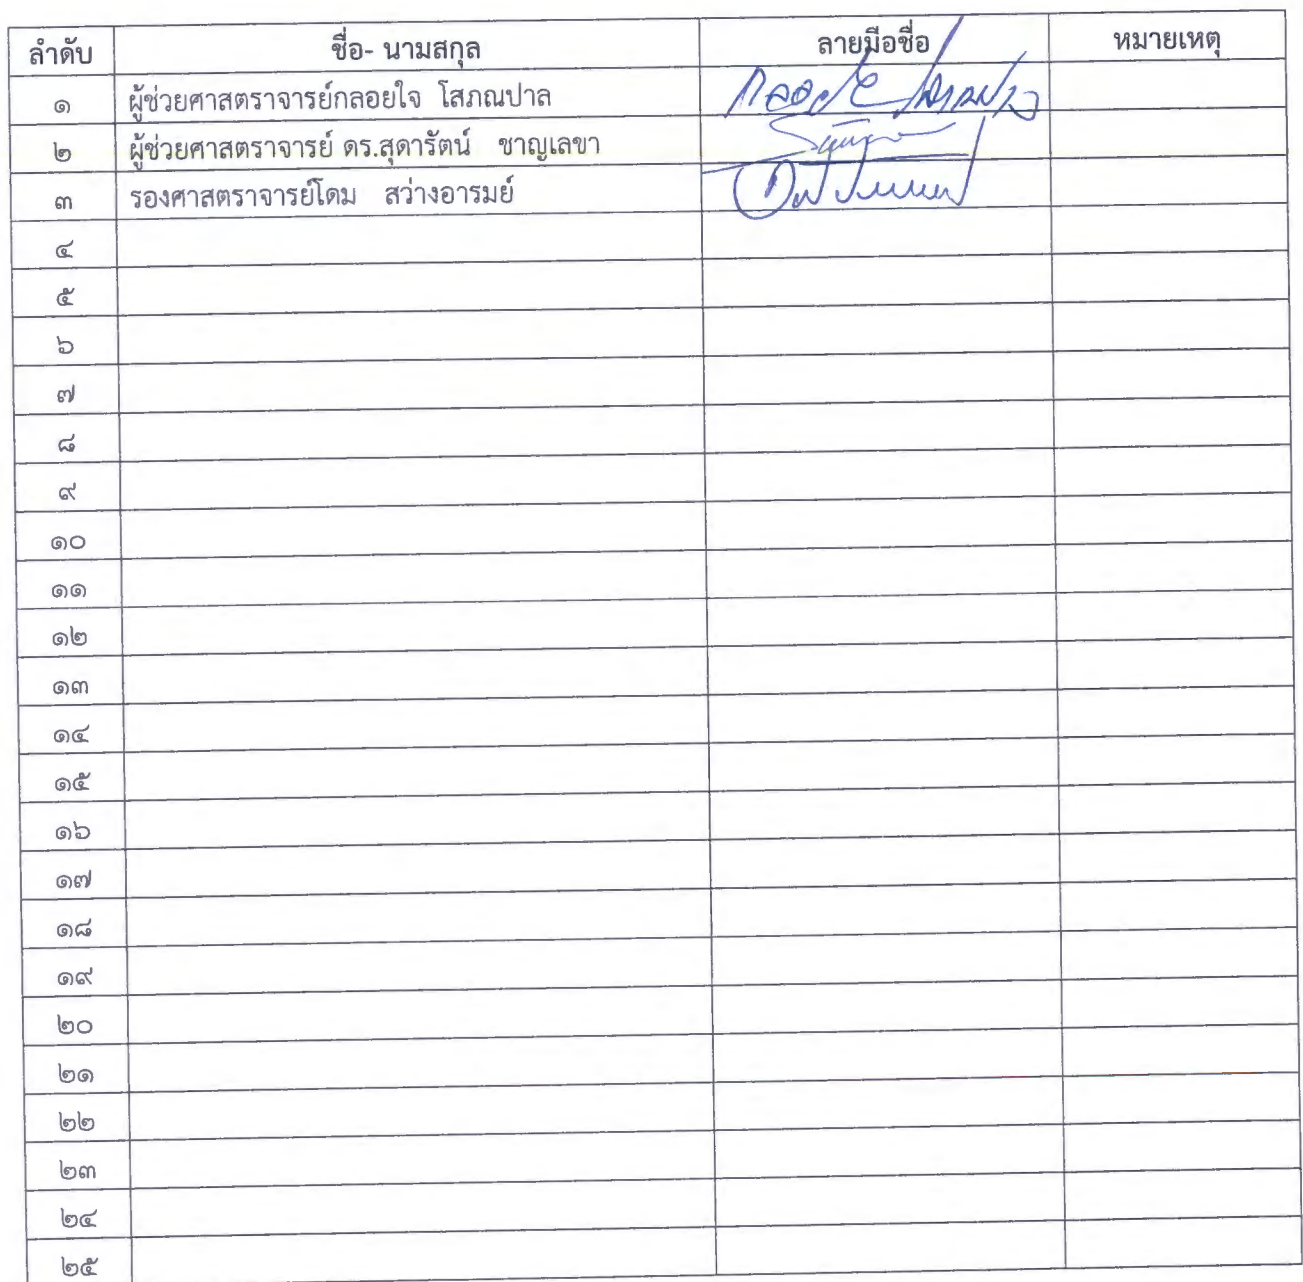 ลำดับ ชื่อ- นามสกุล ลายมือชื่อ หมายเหตุ
๑ ผู้ช่วยศาสตราจารย์กลอยใจ โสภณปาล
๒ ผู้ช่วยศาสตราจารย์ ดร.สุดารัตน์ ชาญเลขา
๓ รองศาสตราจารย์โดม สว่างอารมย์
๔
๕
๖
๗
๘
๙
๑๐
๑๑
๑๒
๑๓
๑๔
๑๕
๑๖
๑๗
๑๘
๑๙
๒๐
๒๑
๒๒
๒๓
๒๔
๒๕